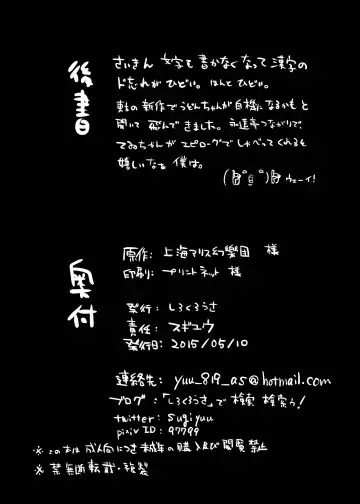 後書
さいきん 文字を書かなくなって漢字の
ド忘れがひどい。ほんとひどい。
東方の新作でうどんちゃんが自機になるかもと
聞いて飛んできました。永遠亭つながりで、
てゐちゃんがエピローグでしゃべってくれると
嬉しいなぁ僕は。
ウェーイ!
奥付
原作: 上海アリス幻樂団 様
印刷: プリントネット 様
発行: しろくろうさ
責任: スギユウ
発行日: 2015/05/10
連絡先: yuu_819_a5@hotmail.com
ブログ: 「しろくろうさ」で検索検索ぅ!
twitter: sugiyuu
pixiv ID: 97799
※この本は成人向につき未成年の購入及び閲覧禁止
※禁無断転載・複製